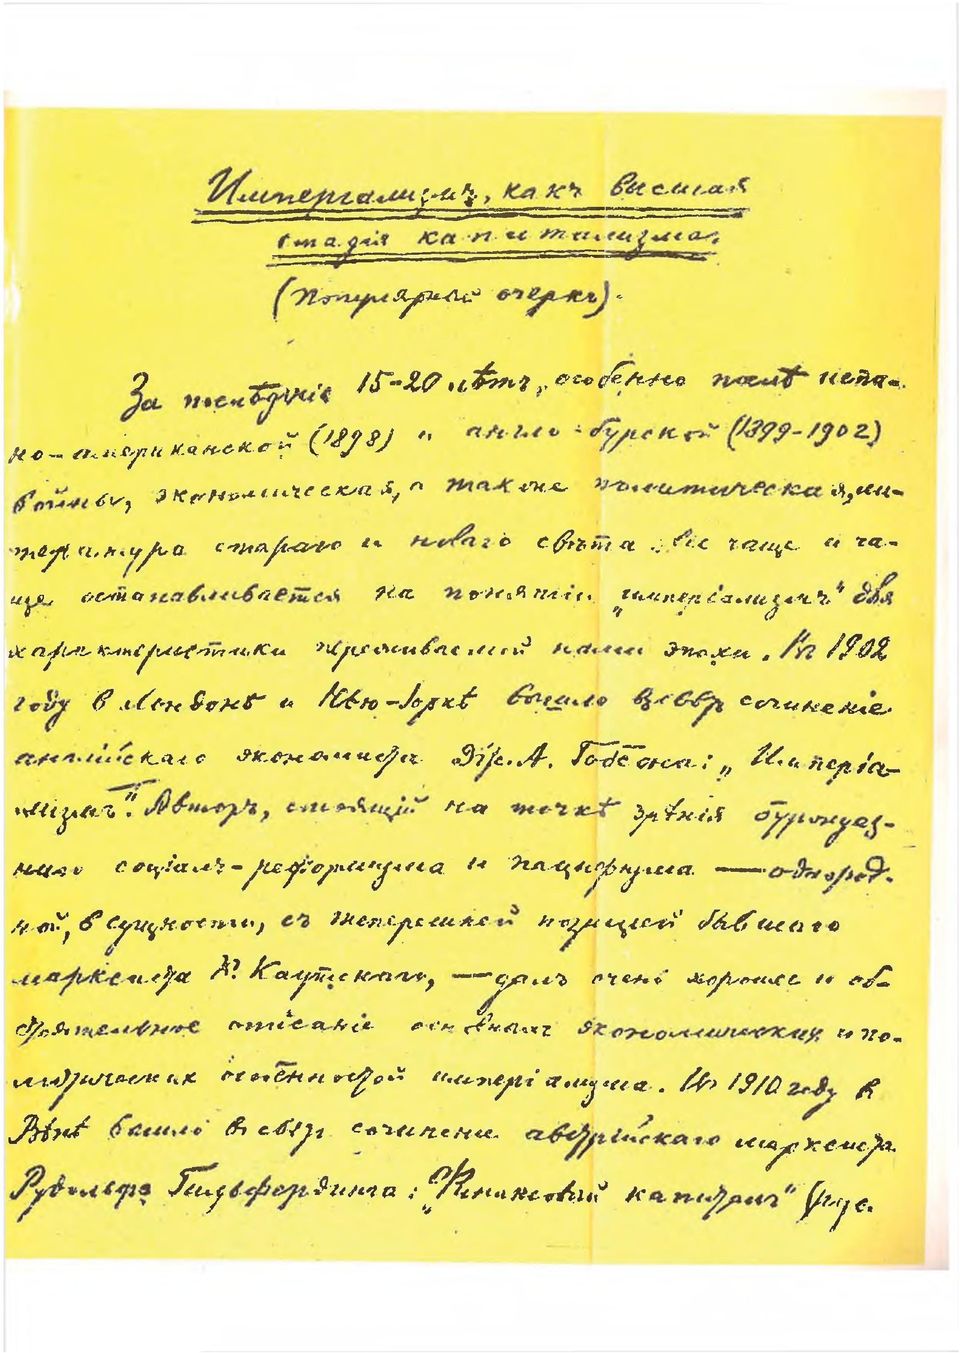 Имперіализмъ, какъ высшая
стадія капитализма.
(Популярный очеркъ).
За послѣдніе 15-20 лѣтъ, особенно послѣ испа-
но-американской (1898) и англо-бурской (1899-1902)
войны, экономическая, а также политическая, ли-
тература стараго и новаго свѣта все чаще и ча-
ще останавливается на понятіи „имперіализмъ" для
характеристики переживаемой нами эпохи. Въ 1902
году в Лондонѣ и Нью-Іоркѣ вышло в свѣтъ сочиненіе
английскаго экономиста Дж. А. Гобсона: „Имперіа-
лизмъ". Авторъ, стоящій на точкѣ зрѣнія буржуаз-
наго соціалъ-реформизма и пацифизма — однород-
ной, в сущности, съ теперешней позицией бывшаго
марксиста К. Каутскаго, — далъ очень хорошее и об-
стоятельное описаніе основных экономических и по-
литических особенностей имперіализма. Въ 1910 году в
Вѣнѣ вышло в свѣтъ сочинение австрийскаго марксиста
Рудольфа Гильфердинга: „Финансовый капиталъ" (рус.